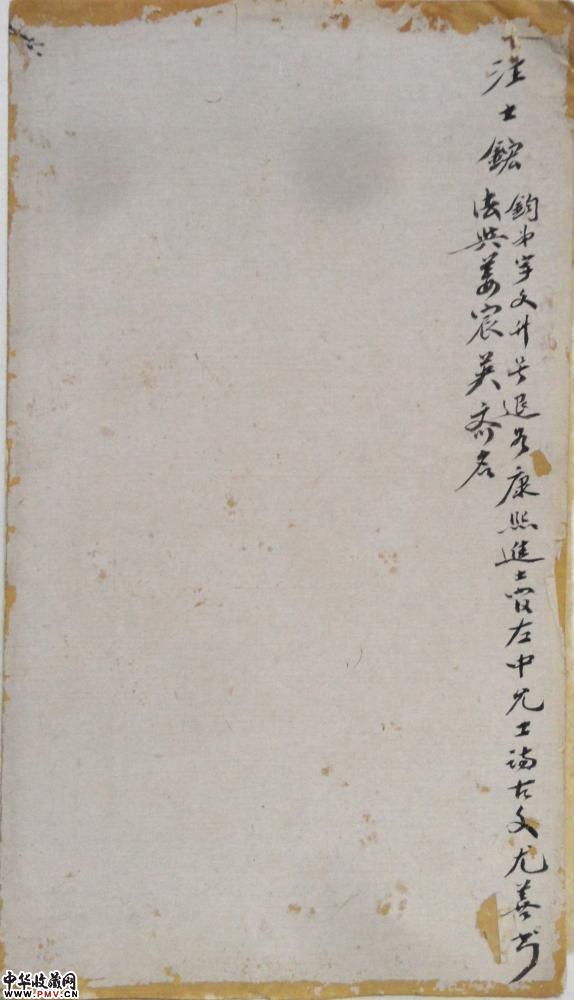 汪士鋐
鈞弟字文升号退谷康熙進士官左中允工詩古文尤善书
法與姜宸英齐名
中华收藏网
www.PMV.CN